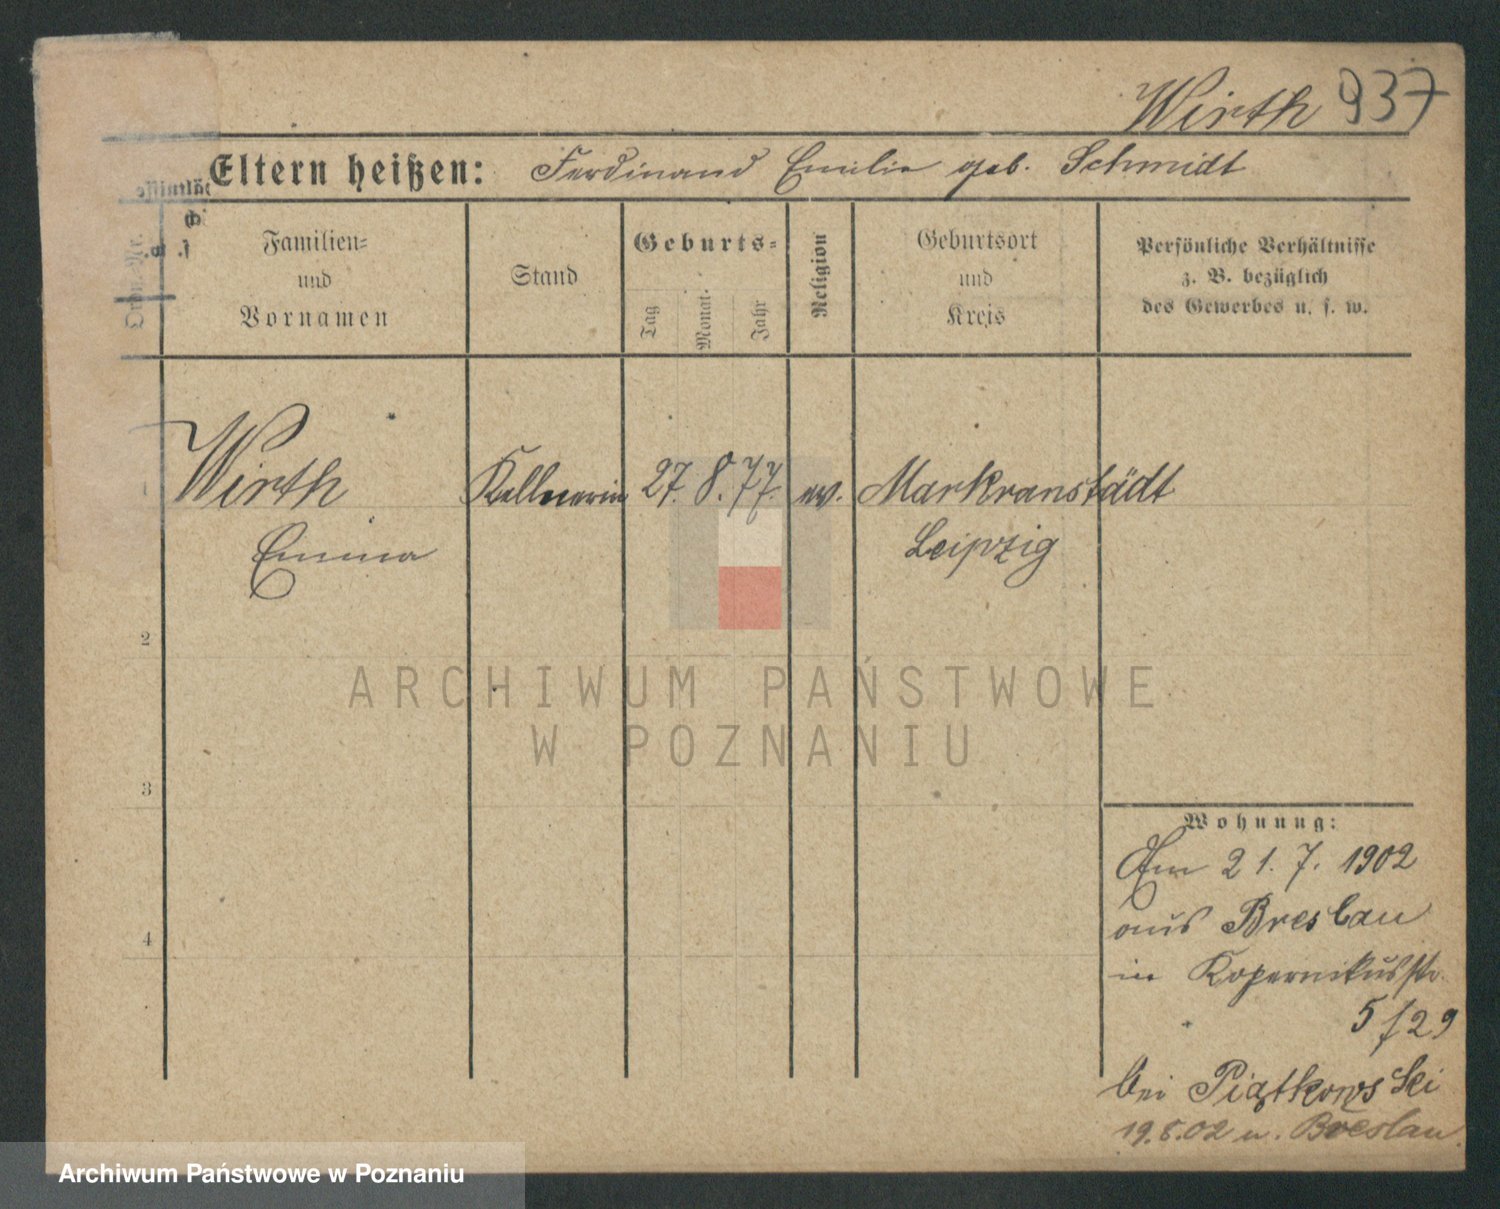 Wirth 937
Eltern heißen: Ferdinand Emilie geb. Schmidt
Familien=
und
Vornamen
Stand
Geburts=
Tag
Monat
Jahr
Religion
Geburtsort
und
Kreis
Persönliche Verhältnisse
z. B. bezüglich
des Gewerbes u. s. w.
Wirth Kellnerin 27. 8. 77. ev. Markranstädt
Emma Leipzig
2
3
4
Wohnung:
Am 21. 7. 1902
aus Breslau
in Kopernikusstr.
5/29
bei Piątkowski
19.8.02 n. Breslau.
ARCHIWUM PAŃSTWOWE
W POZNANIU
Archiwum Państwowe w Poznaniu